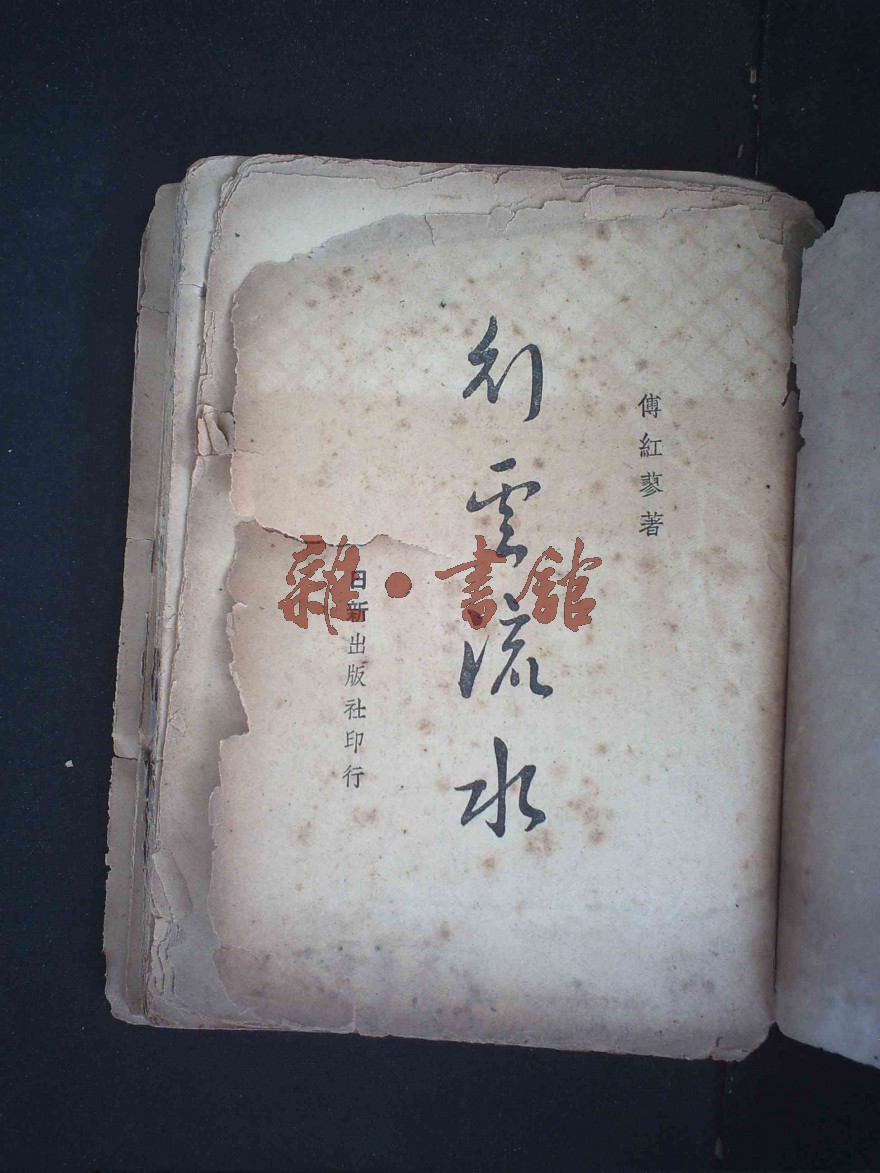 傅紅蓼著
行雲流水
日新出版社印行
雜·書館